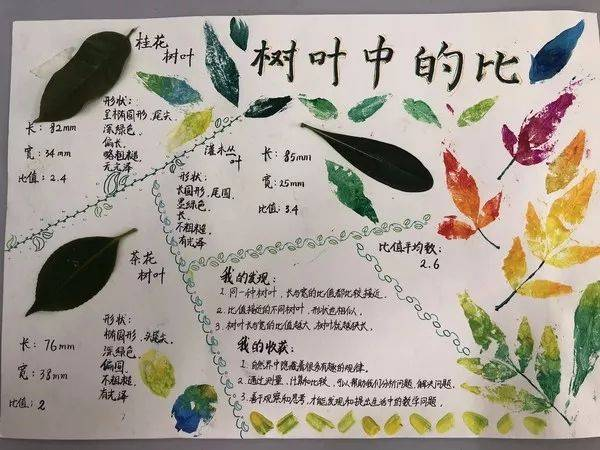 树叶中的比
桂花
树叶
长：82mm
宽：34mm
比值：2.4
形状：
呈椭圆形，尾尖
深绿色、
偏长、
略粗糙、
无光泽
灌木丛
叶
长：85mm
宽：25mm
比值：3.4
形状：
长圆形，尾圆、
墨绿色、
长、
不粗糙、
有光泽
茶花
树叶
长：76mm
宽：38mm
比值：2
形状：
椭圆形，头尾尖、
深绿色、
偏圆、
不粗糙、
有光泽
比值平均数：
2.6
我的发现：
1. 同一种树叶，长与宽的比值都比较接近。
2. 比值接近的不同树叶，形状也相似。
3. 树叶长与宽的比值越大，树叶就越狭长。
我的收获：
1. 自然界中隐藏着很多有趣的规律。
2. 通过测量、计算和比较，可以帮助我们分析问题，解决问题。
3. 善于观察和思考，才能发现和提出生活中的数学问题。